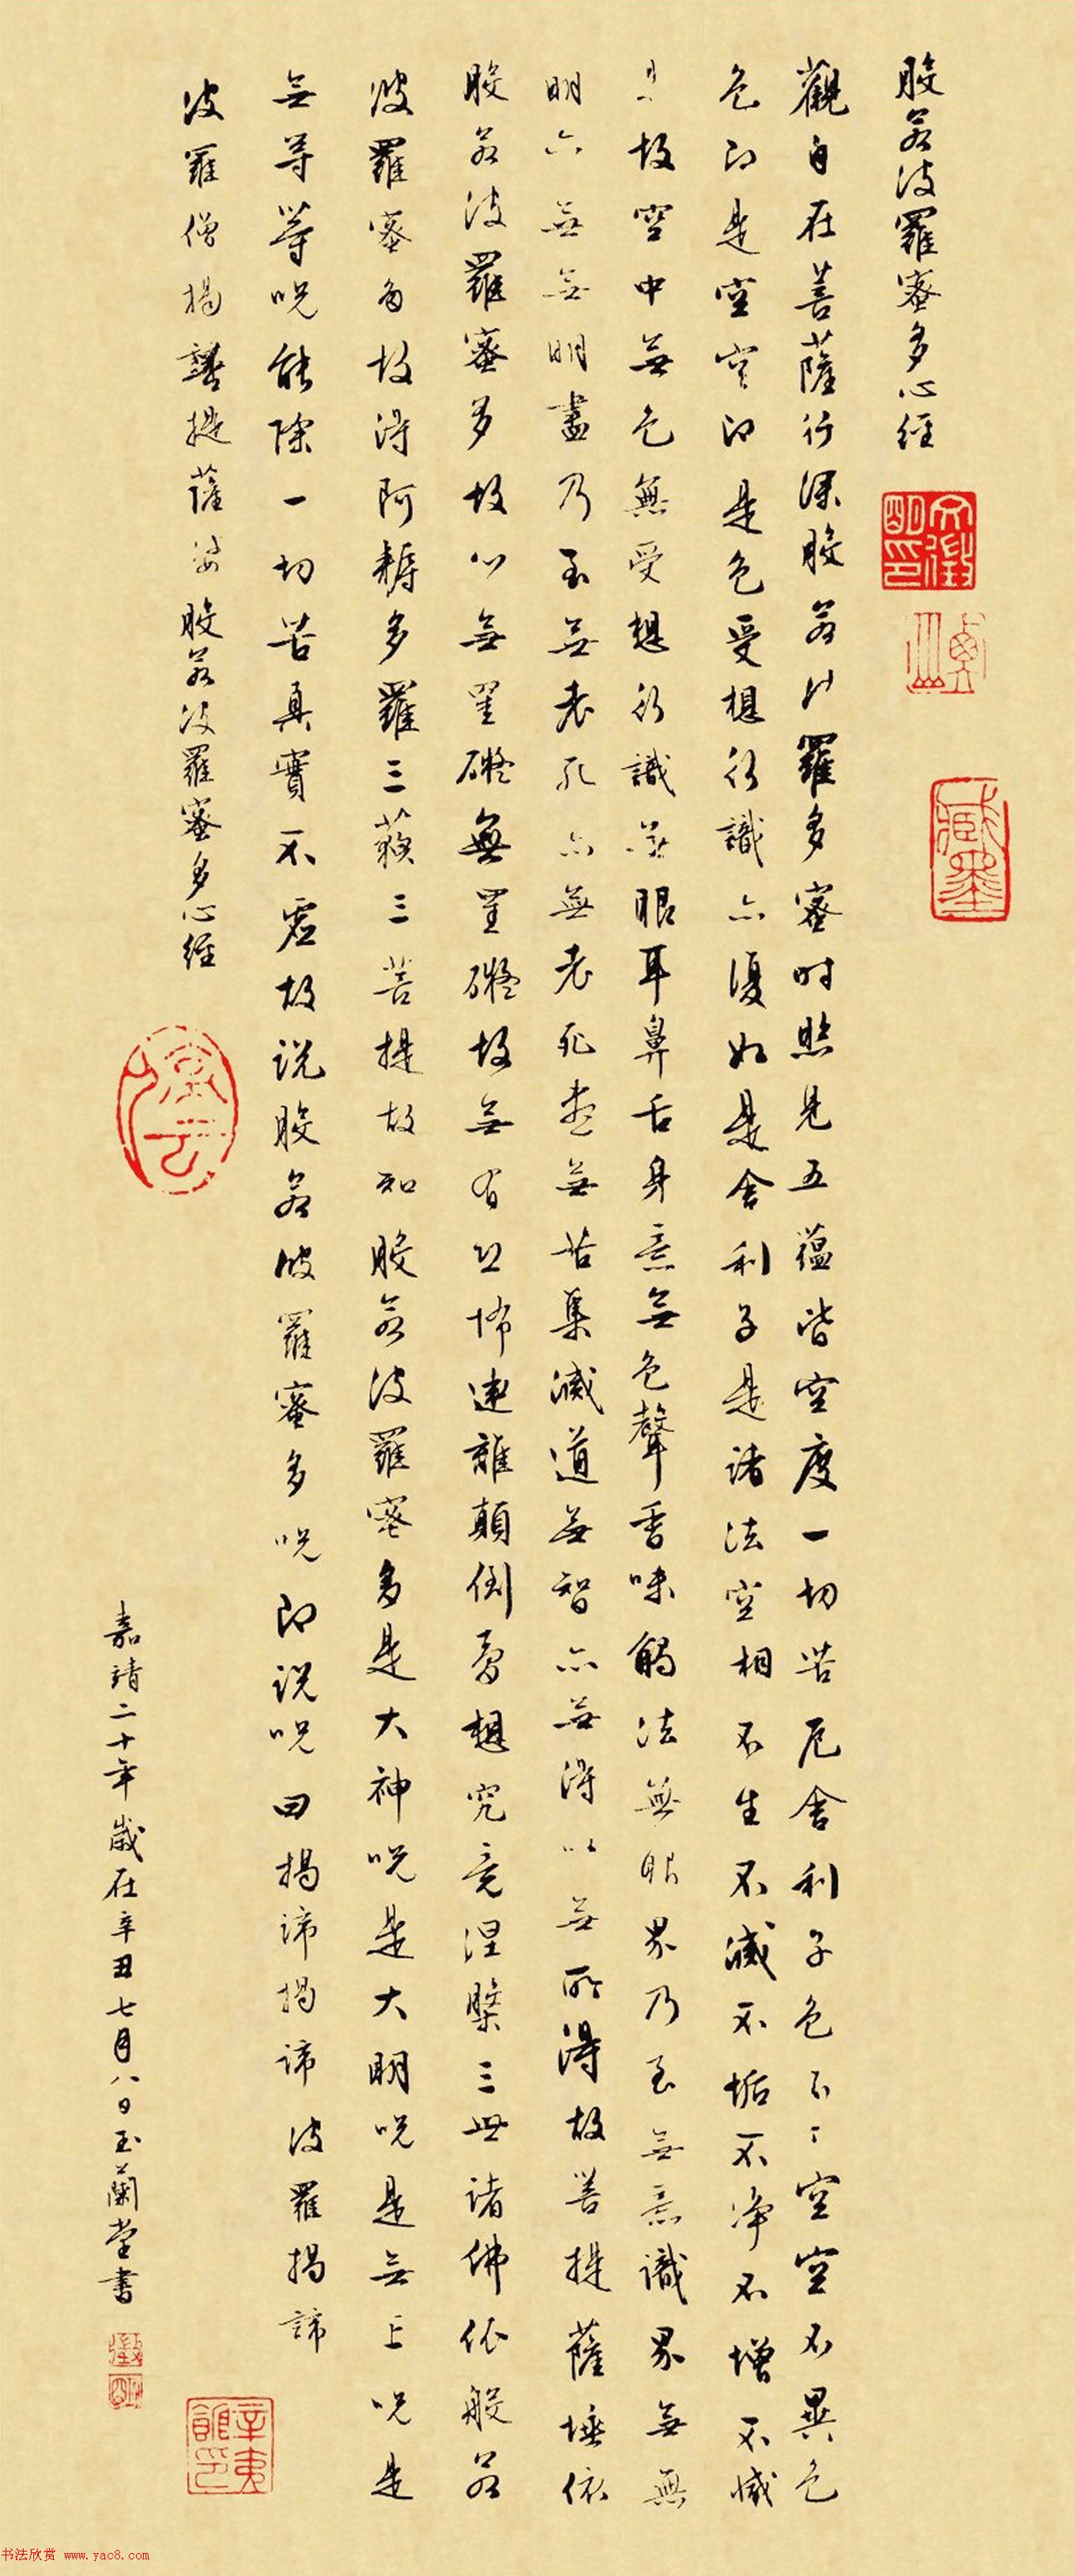 般若波羅蜜多心經
文徵明印
觀自在菩薩行深般若波羅多蜜時照見五蘊皆空度一切苦厄舍利子色不〻空空不異色
色即是空空即是色受想行識亦復如是舍利子是諸法空相不生不滅不垢不淨不增不減
是故空中無色無受想行識無眼耳鼻舌身意無色聲香味觸法無眼界乃至無意識界無無
明亦無無明盡乃至無老死亦無老死盡無苦集滅道無智亦無得以無所得故菩提薩埵依
般若波羅蜜多故心無罣礙無罣礙故無有恐怖遠離顛倒夢想究竟涅槃三世諸佛依般若
波羅蜜多故得阿耨多羅三藐三菩提故知般若波羅蜜多是大神呪是大明呪是無上呪是
無等等呪能除一切苦真實不虛故說般若波羅蜜多呪即說呪曰揭諦揭諦波羅揭諦
波羅僧揭諦提薩婆般若波羅蜜多心經
嘉靖二十年歲在辛丑七月八日玉蘭堂書
徵明
辛夷館印
书法欣赏 www.yac8.com